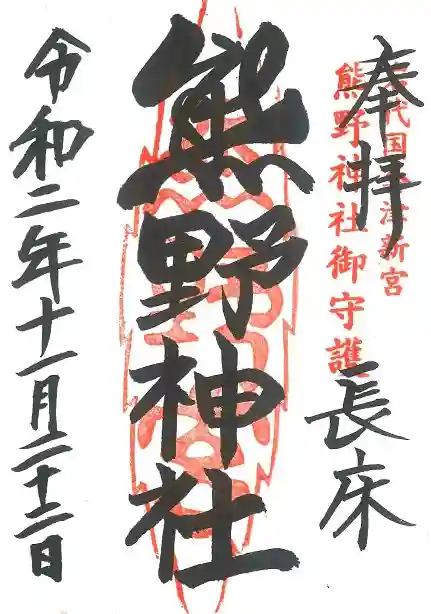 奉拝 長床
岩代国会津新宮
熊野神社御守護
熊野神社
令和二年十一月二十二日